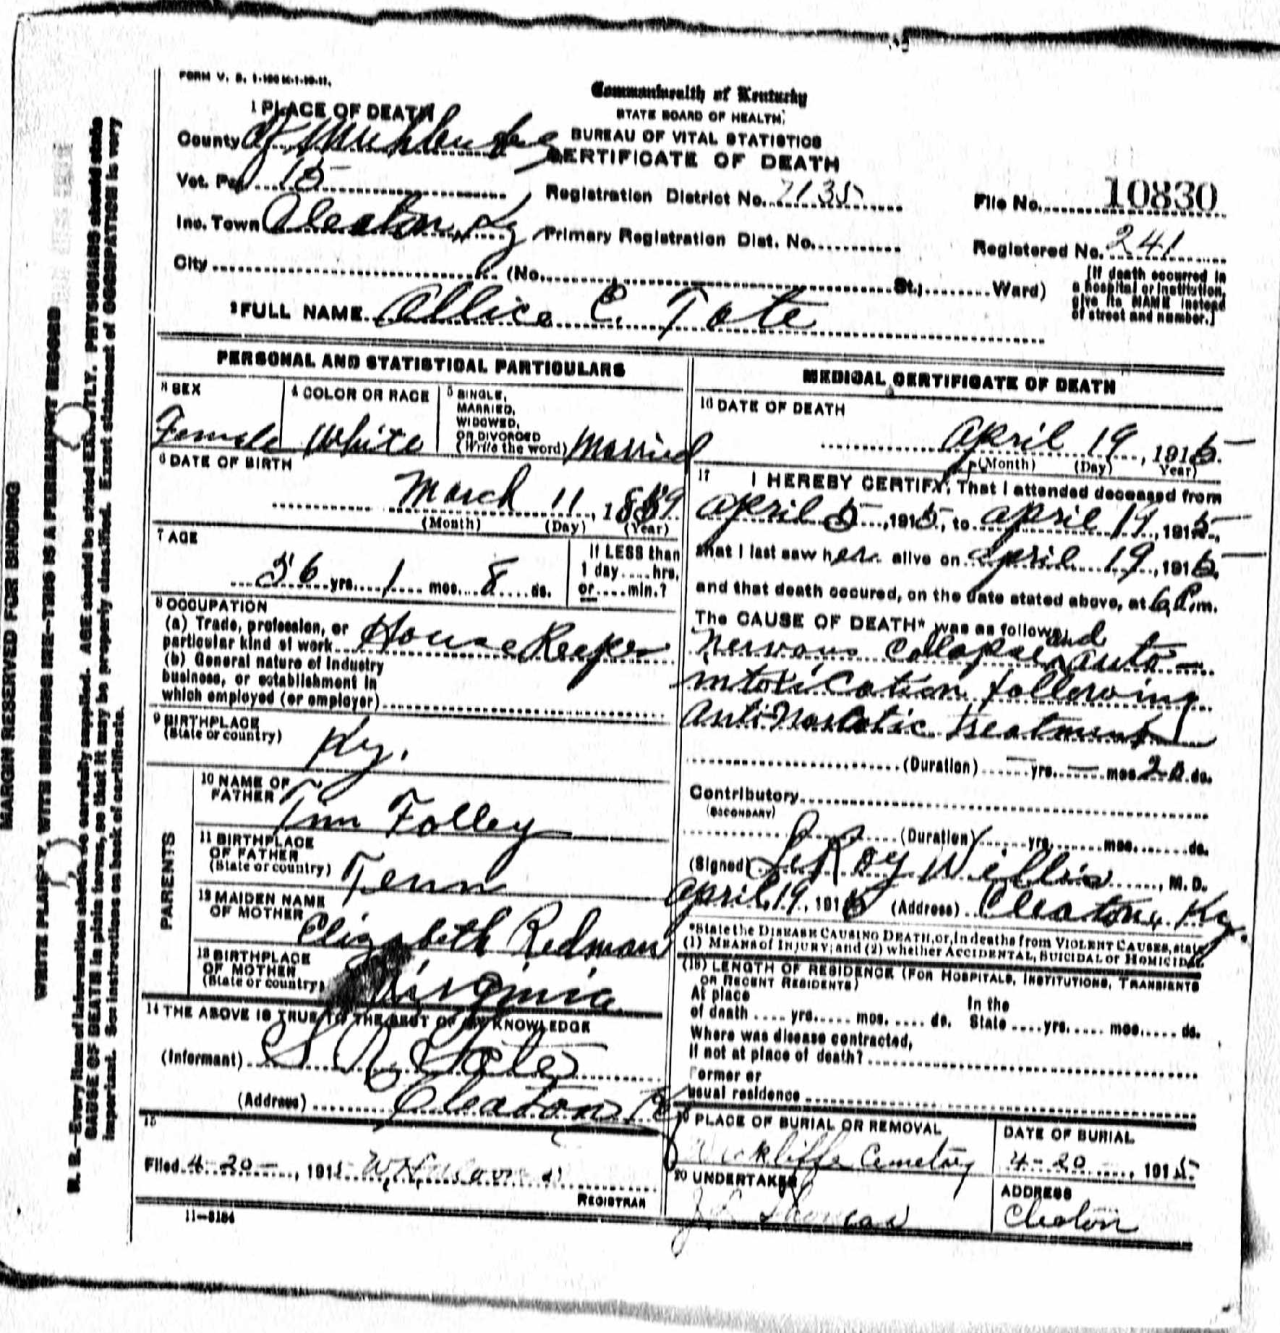 FORM V. S. 1-100 M-1-10-11.
Commonwealth of Kentucky
STATE BOARD OF HEALTH.
BUREAU OF VITAL STATISTICS
CERTIFICATE OF DEATH
1 PLACE OF DEATH
County of Muhlenberg
Vot. Pct 15
Registration District No. 7135
File No. 10830
Inc. Town Cleaton, Ky
Primary Registration Dist. No.
Registered No. 241
City (No. St.; Ward)
[If death occurred in a hospital or institution, give its NAME instead of street and number.]
2 FULL NAME Allice C. Tate
PERSONAL AND STATISTICAL PARTICULARS
3 SEX
Female
4 COLOR OR RACE
White
5 SINGLE, MARRIED, WIDOWED, OR DIVORCED (Write the word) Married
6 DATE OF BIRTH
March 11, 1859
(Month) (Day) (Year)
7 AGE
56 yrs. 1 mos. 8 ds.
If LESS than 1 day.....hrs. or.....min.?
8 OCCUPATION
(a) Trade, profession, or particular kind of work House Keeper
(b) General nature of industry business, or establishment in which employed (or employer)
9 BIRTHPLACE
(State or country) Ky.
PARENTS
10 NAME OF FATHER Tom Folley
11 BIRTHPLACE OF FATHER (State or country) Tenn
12 MAIDEN NAME OF MOTHER Elizabeth Redman
13 BIRTHPLACE OF MOTHER (State or country) Virginia
14 THE ABOVE IS TRUE TO THE BEST OF MY KNOWLEDGE
(Informant) S. R. Tate
(Address) Cleaton Ky
15
Filed 4-20-, 1915
REGISTRAR
11-3184
MEDICAL CERTIFICATE OF DEATH
16 DATE OF DEATH
April 19, 1915
(Month) (Day) Year)
17 I HEREBY CERTIFY, That I attended deceased from
April 5, 1915, to April 19, 1915
that I last saw her alive on April 19, 1915,
and that death occured, on the date stated above, at 6 P.m.
The CAUSE OF DEATH* was as follows:
Nervous Collapse and Auto-
intoxication following
Anti Narcotic treatment
(Duration) — yrs. — mos. 20 ds.
Contributory
(SECONDARY)
(Duration) yrs. mos. ds.
(Signed) LeRoy Willis, M. D.
April, 19, 1915 (Address) Cleaton, Ky.
*State the DISEASE CAUSING DEATH, or, in deaths from VIOLENT CAUSES, state
(1) MEANS of INJURY; and (2) whether ACCIDENTAL, SUICIDAL or HOMICIDAL
(18) LENGTH OF RESIDENCE (FOR HOSPITALS, INSTITUTIONS, TRANSIENTS OR RECENT RESIDENTS)
At place of death .... yrs..... mos..... ds. In the State .... yrs..... mos..... ds.
Where was disease contracted, if not at place of death?
Former or usual residence
19 PLACE OF BURIAL OR REMOVAL
Wickliffe Cemetery
DATE OF BURIAL
4-20-, 1915
20 UNDERTAKER
ADDRESS
Cleaton
MARGIN RESERVED FOR BINDING
WRITE PLAINLY, WITH UNFADING INK--THIS IS A PERMANENT RECORD
N. B.--Every item of information should be carefully supplied. AGE should be stated EXACTLY. PHYSICIANS should state
CAUSE OF DEATH in plain terms, so that it may be properly classified. Exact statement of OCCUPATION is very
important. See instructions on back of certificate.